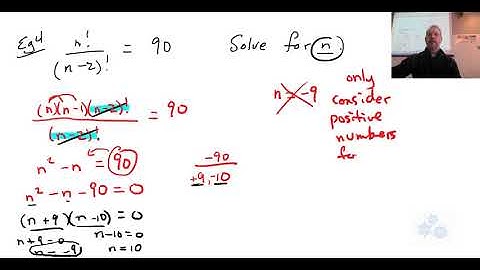 Eg4 n!/(n-2)! = 90 Solve for n.
(n)(n-1)(n-2)!/(n-2)! = 90
n² - n = 90
n² - n - 90 = 0
(n+9)(n-10) = 0
n+9=0 n-10=0
n = -9 n=10
-90
+9, -10
n = -9
only
consider
positive
numbers
for